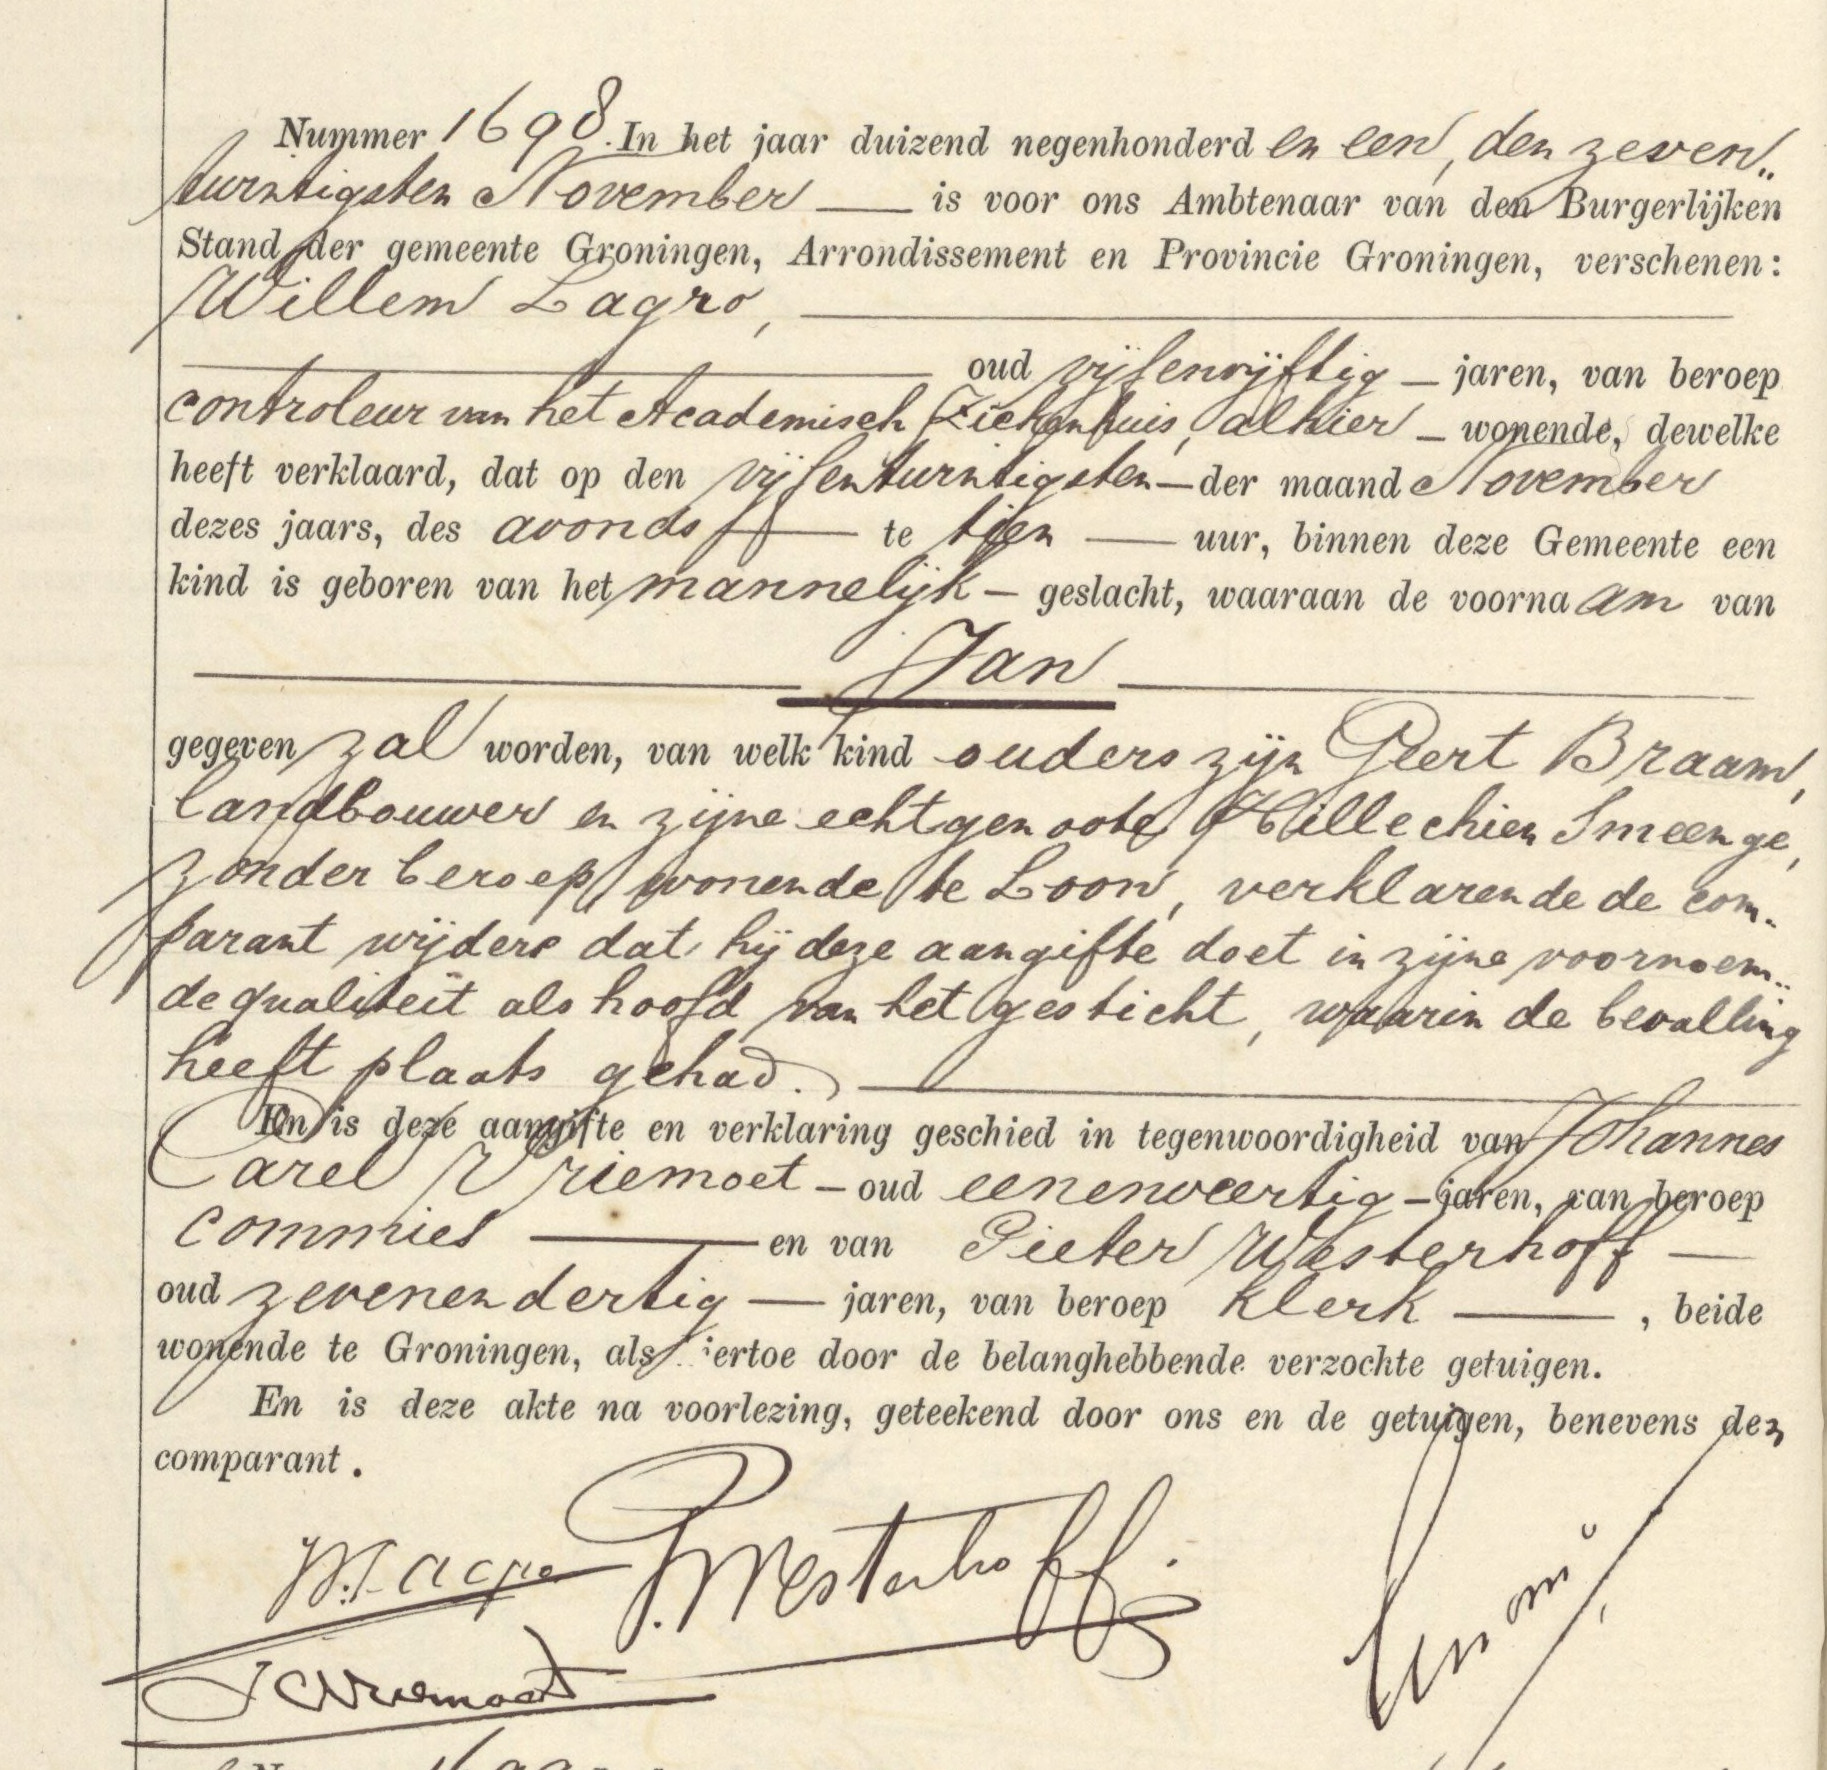 Nummer 1698. In het jaar duizend negenhonderd en een, den zeven„
twintigsten November — is voor ons Ambtenaar van den Burgerlijken
Stand der gemeente Groningen, Arrondissement en Provincie Groningen, verschenen:
Willem Lagro,
oud vijfenvijftig – jaren, van beroep
controleur van het Academisch Ziekenhuis, alhier – wonende, dewelke
heeft verklaard, dat op den vijfentwintigsten – der maand November
dezes jaars, des avonds — te tien — uur, binnen deze Gemeente een
kind is geboren van het mannelijk – geslacht, waaraan de voornaam van
Jan
gegeven zal worden, van welk kind ouders zijn Geert Braam,
landbouwer en zijne echtgenoote Hillechien Smeenge,
zonder beroep, wonende te Loon, verklarende de com„
parant wijders dat hij deze aangifte doet in zijne voornoem„
de qualiteit als hoofd van het gesticht, waarin de bevalling
heeft plaats gehad. —
En is deze aangifte en verklaring geschied in tegenwoordigheid van Johannes
Carel Vriemoet – oud eenenveertig – jaren, van beroep
commies — en van Pieter Westerhoff —
oud zevenendertig — jaren, van beroep klerk — , beide
wonende te Groningen, als hiertoe door de belanghebbende verzochte getuigen.
En is deze akte na voorlezing, geteekend door ons en de getuigen, benevens den
comparant.
W. Lagro P. Westerhoff.
J C Vriemoet